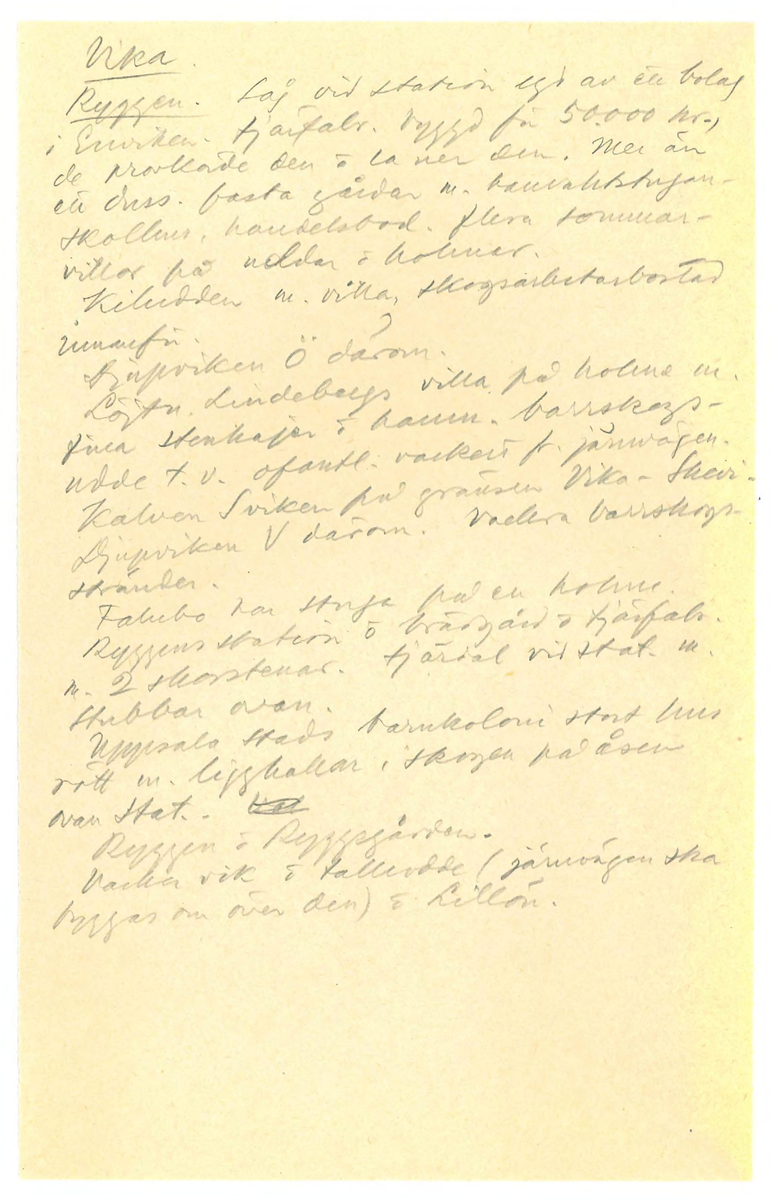 Vika.
Ryggen. Såg vid station egd av ett bolag
i Enviken. Tjärfabr. byggd för 50.000 kr.,
de provkörde den o la ner den. Mer än
ett duss. fasta gårdar m. banvaktstugan-
skollus. handelsbod. flera sommar-
villor på uddar o holmar.
Kiludden m. villa, skogsarbetarbostad
innanför.
Djupviken Ö därom.
Löjtn. Lindebergs villa på holme m.
fina stenkajer o hamn. barrskogs-
udde t.v. ofantl. vackert fr. järnvägen.
Kalven S viken på gränsen Vika-Skedvi.
Djupviken V därom. Vackra barrskogs-
stränder.
Falubo har stuga på en holme.
Ryggens station o brädgård o tjärfabr.
m. 2 skorstenar. tjärdal vid stat. m.
stubbar ovan.
Uppsala stads barnkoloni stort hus
rött m. ligghallar i skogen på åsen
ovan stat..
Ryggen o Ryggsgården.
Vacker vik o talludde (järnvägen ska
byggas om över den) o Lillön.